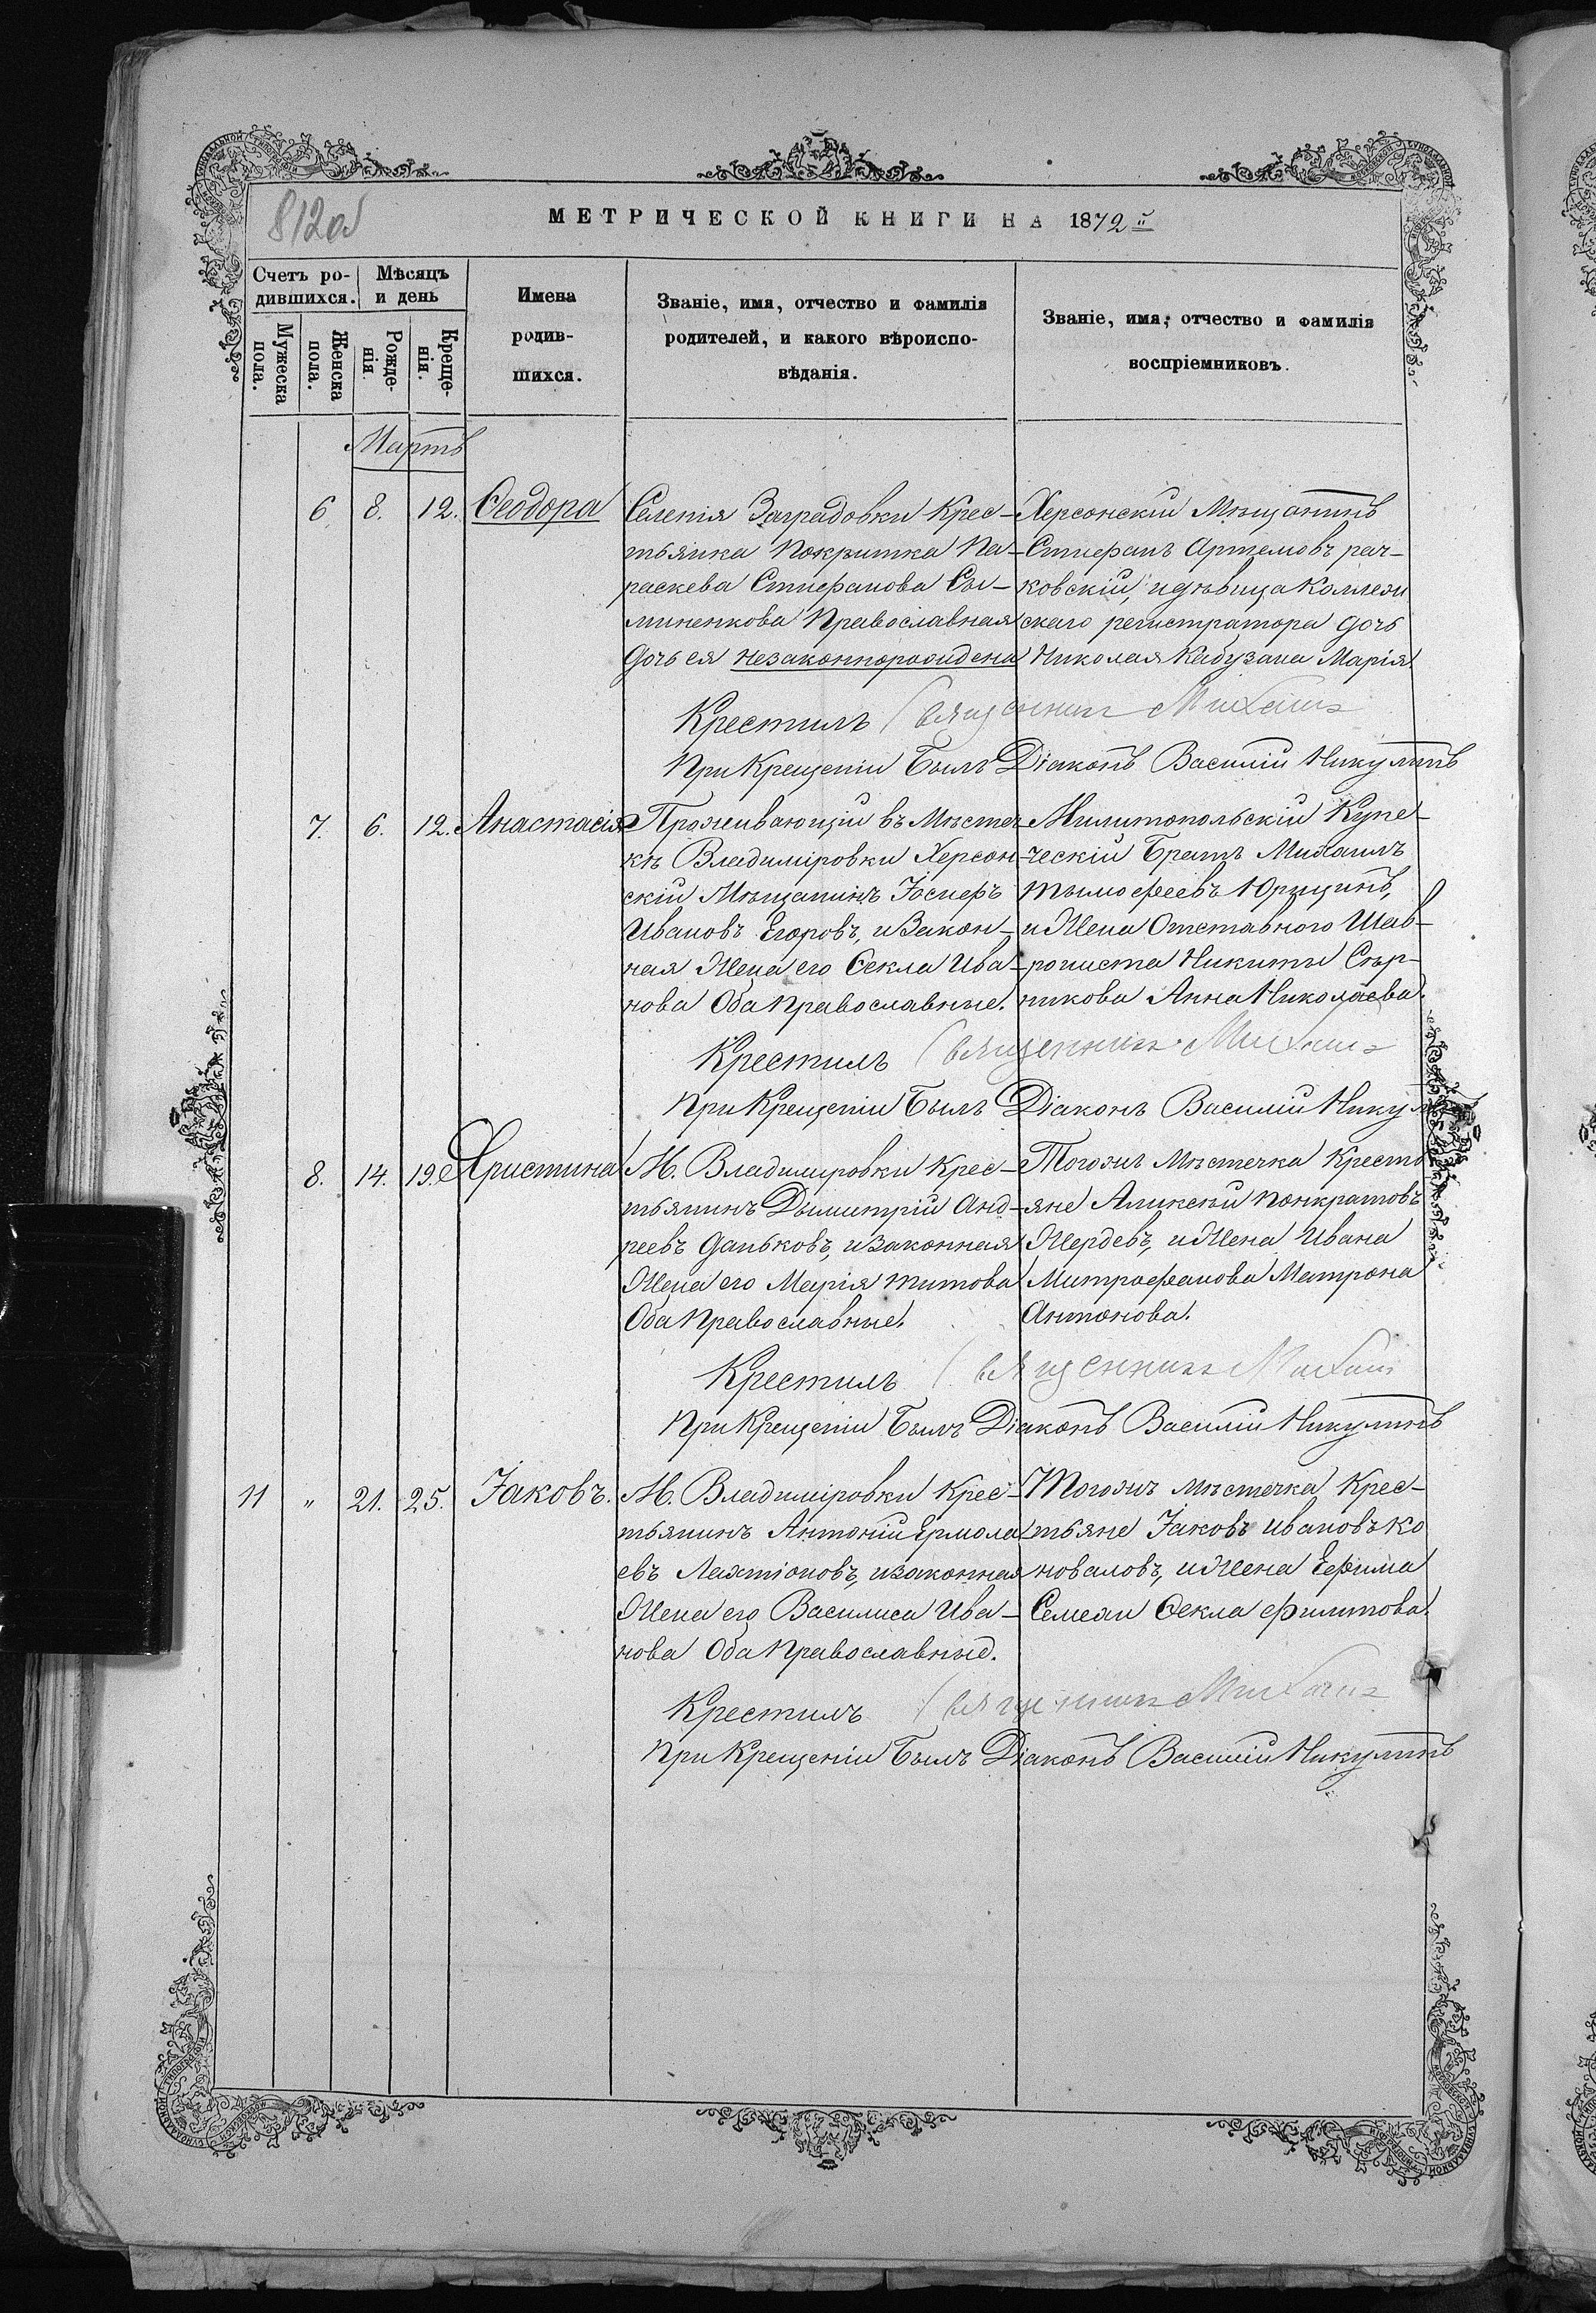 812об
МЕТРИЧЕСКОЙ КНИГИ НА 1872й
Счетъ ро-
дившихся.
Мѣсяцъ
и день
Мужеска
пола.
Женска
пола.
Рожде-
нія
Креще-
нія.
Имена
родив-
шихся.
Званіе, имя, отчество и фамилія
родителей, и какого вѣроиспо-
вѣданія.
Званіе, имя, отчество и фамилія
воспріемниковъ.
Мартъ
6 8. 12. Ѳеодора
Селенія Заградовки Крес-
тьянка Покрытка Па-
раскева Стиефанова Сы-
миненкова Православная
Дочь ея незаконнорождена
Херсонскій Мѣщанинъ
Стиефанъ Артемовъ рач-
ковскій, и дѣвица Коллежи
скаго регистратора дочь
Николая Кабузана Марія.
Крестилъ Священникъ Михаилъ
При Крещеніи Былъ Діаконъ Василій Никулинъ
7. 6. 12. Анастасія
Проживающій въ Мѣстеч-
кѣ Владиміровки Херсон-
скій Мѣщанинъ Іосиеръ
Ивановъ Егоровъ, и Закон-
ная Жена его Ѳекла Ива-
нова Оба Православные.
Милитопольскій Купе-
ческій Братъ Михаилъ
Тымофеевъ Юрицинъ,
и Жена Отставного Шав-
рониста Никиты Сѣр-
никова Анна Николаева.
Крестилъ Священникъ Михаилъ
При Крещеніи Былъ Діаконъ Василій Никул
8. 14. 19. Христина
М. Владиміровки Крес-
тьянинъ Дымитрій Анд-
реевъ Даньковъ, и Законная
Жена его Марія Титова
Оба Православные.
Тогожъ Мѣстечка Кресть
яне Аликсѣй Панкратовъ
Жердевъ, и Жена Ивана
Митрофанова Матрона
Антонова.
Крестилъ Священникъ Михаилъ
При Крещеніи Былъ Діаконъ Василій Никулинъ
11 „ 21. 25. Іаковъ.
М. Владиміровки Крес-
тьянинъ Антоній Ермола
евъ Лахтіоновъ, и законная
Жена его Василиса Ива-
нова Оба Православные.
Тогожъ Мѣстечка Крес-
тьяне Іаковъ Ивановъ Ко
новаловъ, и Жена Ефима
Семежи Ѳекла Филипова.
Крестилъ Священникъ Михаилъ
При Крещеніи Былъ Діаконъ Василій Никулинъ